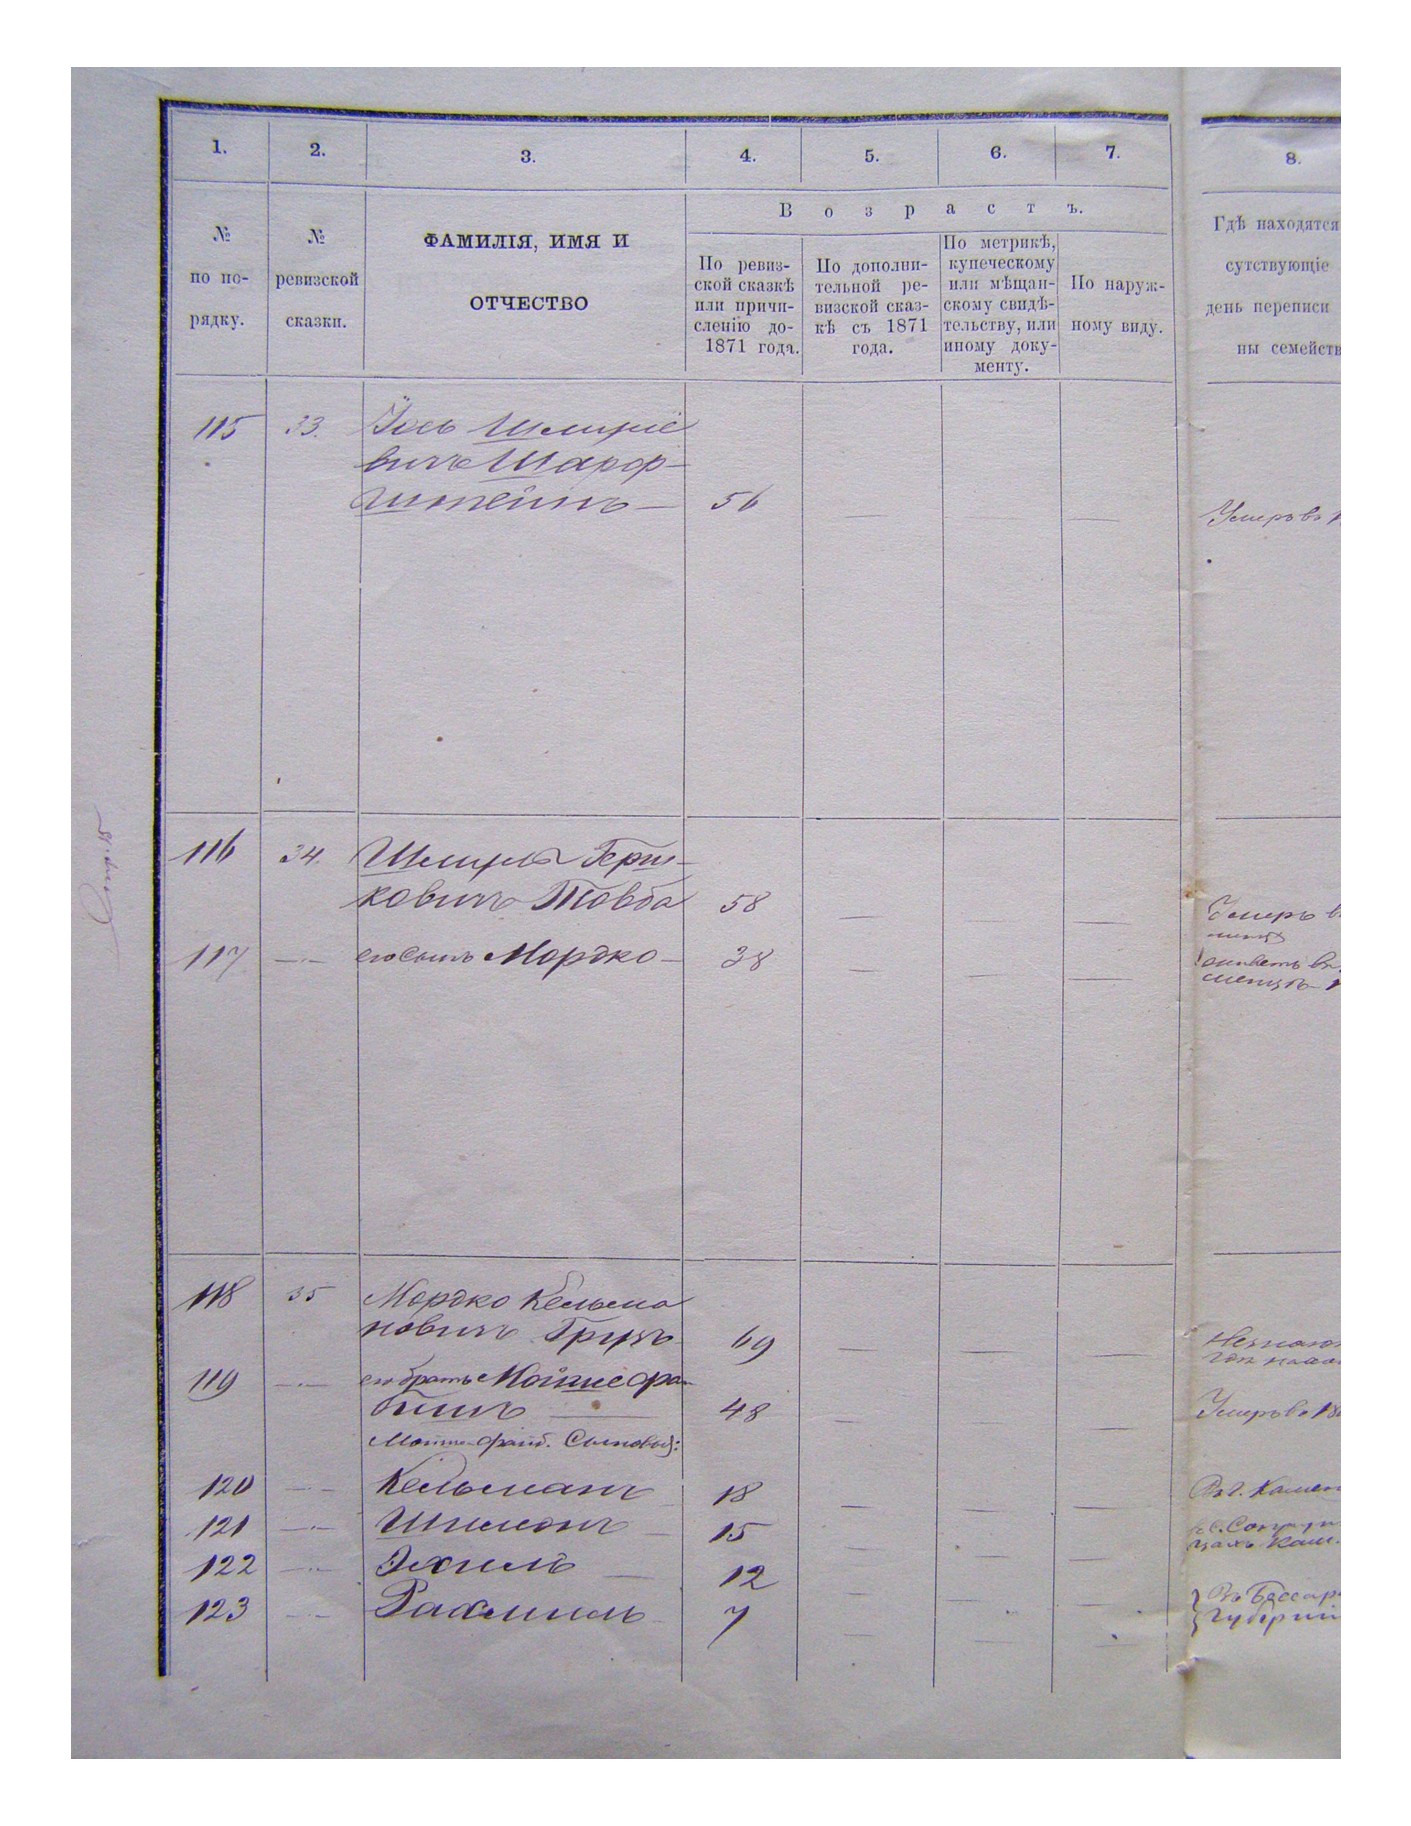 1. 2. 3. 4. 5. 6. 7. 8.
Возрастъ.
№
по по-
рядку.
№
ревизской
сказки.
ФАМИЛІЯ, ИМЯ И
ОТЧЕСТВО
По ревиз-
ской сказкѣ
или причи-
сленію до-
1871 года.
По дополни-
тельной ре-
визской сказ-
кѣ съ 1871
года.
По метрикѣ,
купеческому
или мѣщан-
скому свидѣ-
тельству, или
иному доку-
менту.
По наруж-
ному виду.
Гдѣ находятся
сутствующіе
день переписи
ны семейств
115 33. Іось Шлиміе
вичъ Шарф-
штейнъ — 56 — — — Умеръ въ 1
116 34. Шлима Герш-
ковичъ Товба 58 — — — Умеръ в
117 — его сынъ Мордко — 38 — — —
118 35 Мордко Кельма
новичъ Груцъ 69 — — —
119 — его братъ Мошко фа-
бишъ — 48 — — Умеръ въ 18
Мошко-файб. Сыновья:
120 — Кельманъ 18 — — — Въ г. Камен
121 — Шимонъ — 15 — — —
122 — Эхиль — 12 — — —
123 — Рахмиль 7 — — —
Въ Бессар
Губерніи